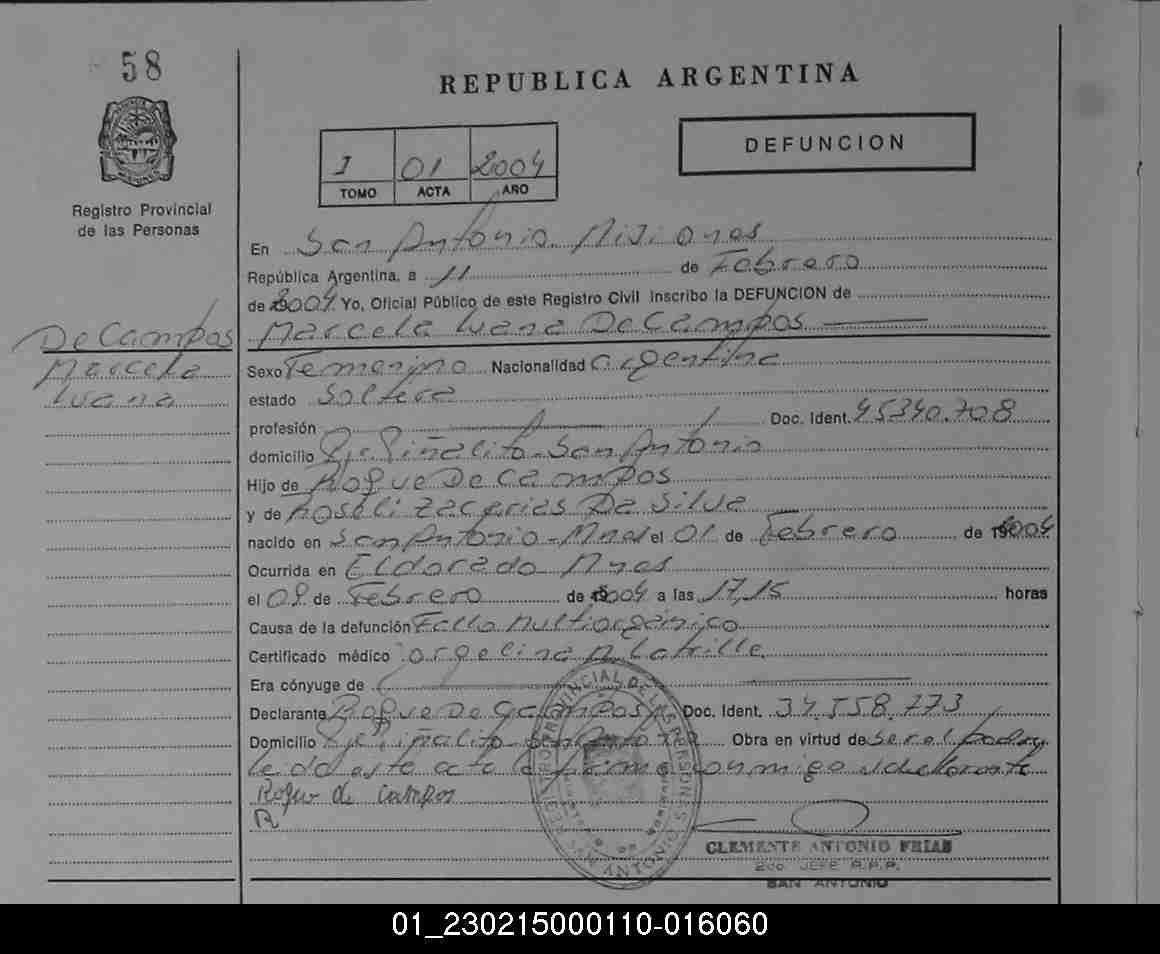 58
REPUBLICA ARGENTINA
DEFUNCION
1 01 2004
TOMO ACTA AÑO
Registro Provincial
de las Personas
En San Antonio Misiones
República Argentina, a 11 de Febrero
de 2004 Yo, Oficial Público de este Registro Civil inscribo la DEFUNCION de
Marcela Luana De Campos
De Campos
Marcela
Luana
Sexo Femenino Nacionalidad argentina
estado Soltera
profesión Doc. Ident. 45340.708
domicilio Pje Piñalito San Antonio
Hijo de Roque De Campos
y de Roseli Zacarias Da Silva
nacido en San Antonio - Mnes el 01 de Febrero de 2004
Ocurrida en Eldorado Mnes
el 09 de Febrero de 2004 a las 17,15 horas
Causa de la defunción Fallo Multiorgánico
Certificado médico Jorgelina M. Latrille
Era cónyuge de
Declarante Roque De Campos Doc. Ident. 34.558.773
Domicilio Pje Piñalito San Antonio Obra en virtud de ser el padre
leida esta acta la firma conmigo el declarante
Roque de campos
R
REGISTRO PROVINCIAL DE LAS PERSONAS
SAN ANTONIO
CLEMENTE ANTONIO FRIAS
2do. JEFE R.P.P.
SAN ANTONIO
01_230215000110-016060